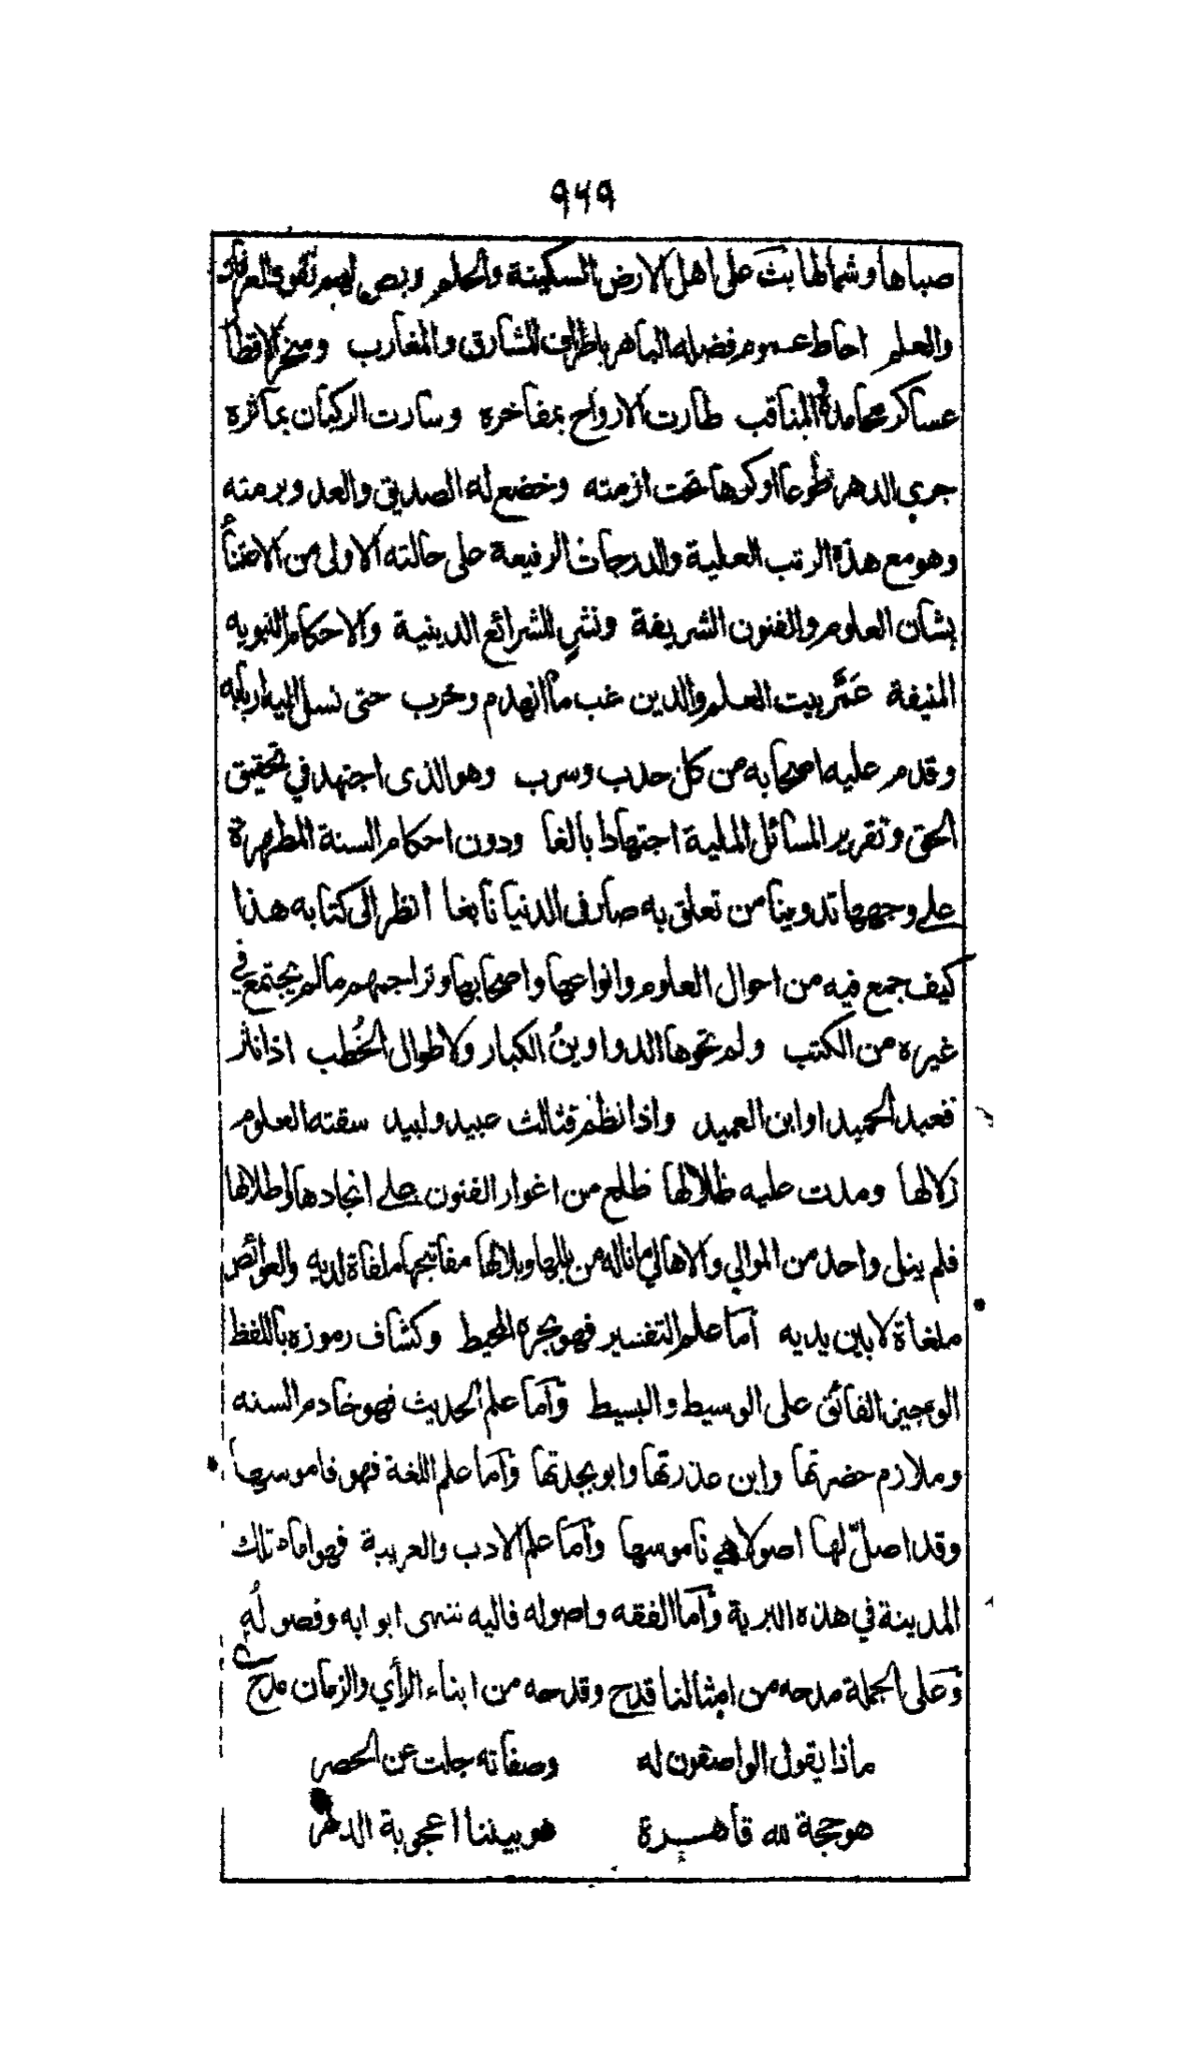 ٩٦٩
صباها وشمالها بث على اهل الارض السكينة والحلم ونص لهم تقوى العرفان
والعلم احاط عموم فضله الباهر باطراف المشارق والمغارب وسخر الاقطا
عساكر محامده المناقب طارت الارواح بمفاخره وسارت الركبان بمآثره
جرى الدهر طوعا اوكرها تحت ازمته وخضع له الصديق والعدو برمته
وهو مع هذه الرتب العلية والدرجات الرفيعة على حالته الاولى من الاعتناء
بشان العلوم والفنون الشريفة ونشر الشرائع الدينية والاحكام النبويه
المنيفة عَمَّر بيت العلم والدين غب ما انهدم وخرب حتى نسل اليه اربابه
وقدم عليه اصحابه من كل حدب وسرب وهو الذى اجتهد في تحقيق
الحق وتقرير المسائل الملية اجتهادا بالغا ودون احكام السنة المطهرة
على وجهها تدوينا من تعلق به صار فى الدنيا نابغا انظر الى كتابه هذا
كيف جمع فيه من احوال العلوم وانواعها واصحابها وتراجمهم مالم يجتمع في
غيره من الكتب ولم تحوها الدواوينُ الكبار ولا طوال الخُطب اذا نثر
فعبد الحميد اوابن العميد واذا نظم فثالث عبيد ولبيد سقته العلوم
زلالها ومدت عليه ظلالها طلع من اغوار الفنون على انجادها واطلالها
فلم ينل واحد من الموالي والاهالي ما ناله من بللها وبلالها مفاتيحها ملقاة لديه والعوائص
ملغاة لابين يديه أما علم التفسير فهو بحره المحيط وكشاف رموزه باللفظ
الوجيز الفائق على الوسيط والبسيط وأما علم الحديث فهو خادم السنه
وملازم حضرتها وابن عذرتها وابو بجدتها وأما علم اللغة فهو قاموسها
وقد اصلّ لها اصولا هي ناموسها وأما علم الادب والعربية فهو امام تلك
المدينة في هذه البرية وأما الفقه واصوله فاليه تنتهى ابوابه وفصولُه
وعلى الجملة مدحه من امثالنا قدح وقدحه من ابناء الرأي والزمان مدح
ماذا يقول الواصفون له وصفاته جلت عن الحصر
هو حجة لله قاهرة هو بيننا اعجوبة الدهر